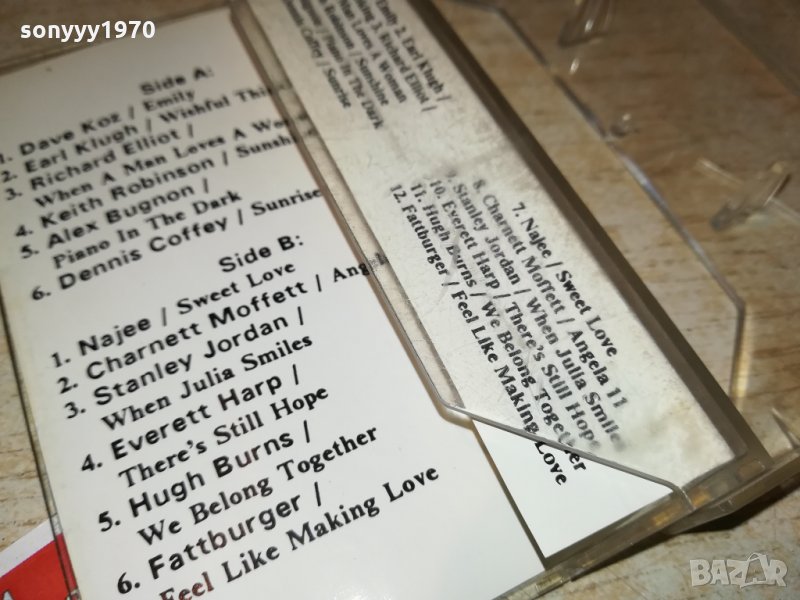 sonyyy1970
Side A:
1. Dave Koz / Emily
2. Earl Klugh / Wishful Thin
3. Richard Elliot /
When A Man Loves A Wo
4. Keith Robinson / Sunsh
5. Alex Bugnon /
Piano In The Dark
6. Dennis Coffey / Sunrise
Side B:
1. Najee / Sweet Love
2. Charnett Moffett / Angel
3. Stanley Jordan /
When Julia Smiles
4. Everett Harp /
There's Still Hope
5. Hugh Burns /
We Belong Together
6. Fattburger /
Feel Like Making Love
Emily 2. Earl Klugh /
3. Richard Elliot /
Man Loves A Woman
Robinson / Sunshine
/ Piano In The Dark
Coffey / Sunrise
7. Najee / Sweet Love
8. Charnett Moffett / Angela 11
9. Stanley Jordan / When Julia Smiles
10. Everett Harp / There's Still Hope
11. Hugh Burns / We Belong Together
12. Fattburger / Feel Like Making Love
BAZAR